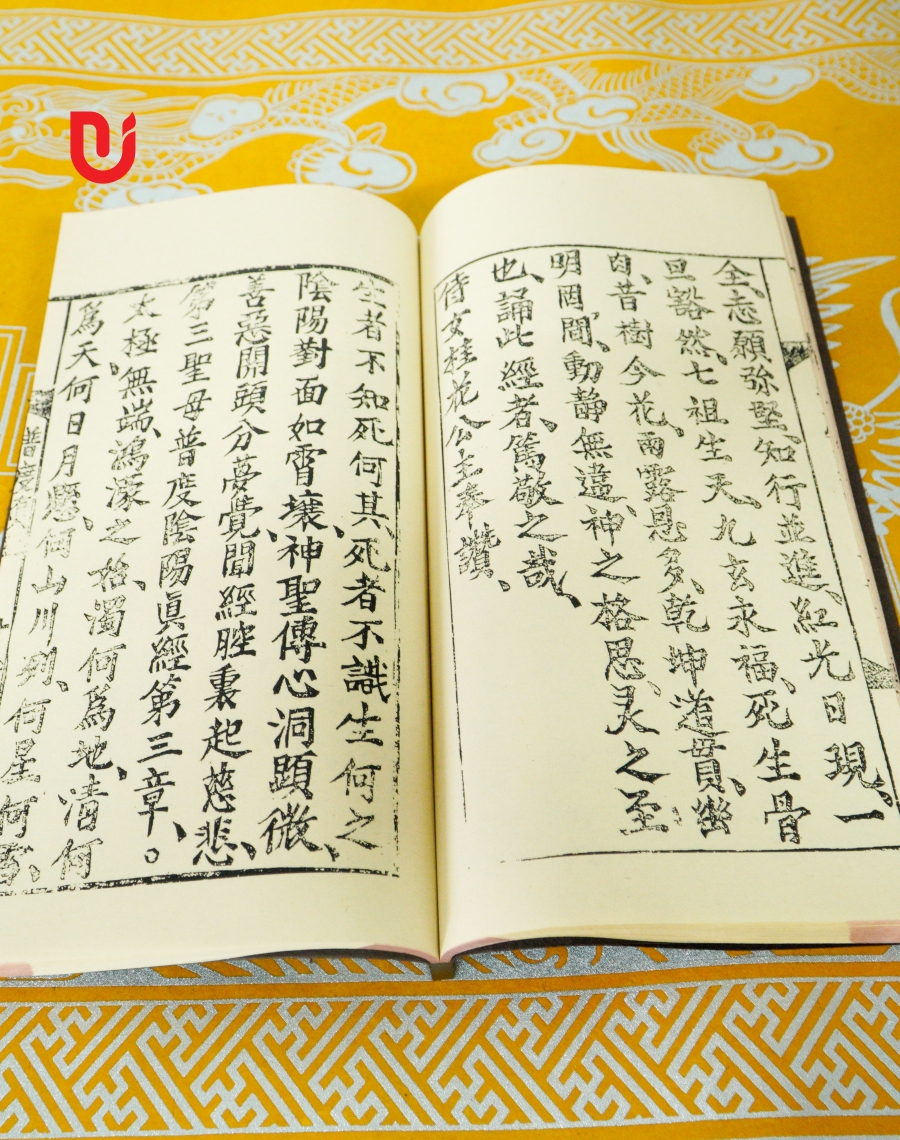 全、志願弥堅、知行並進、紅光日現、一
旦豁然、七祖生天、九玄永福、死生骨
肉、昔樹今花、雨露恩多、乾坤道貫、幽
明罔間、動静無違、神之格思、灵之至
也、誦此經者、篤敬之哉、
侍女桂花公主奉讚、
生者不知死何其、死者不識生何之、
陰陽對面如霄壤、神聖傳心洞顕微、
善惡開頭分夢覺、聞經腔裏起慈悲、
第三聖母普度陰陽眞經第三章、。
太極無端、鴻濛之始、濁何爲地、清何
爲天、何日月懸、何山川列、何星何
普度